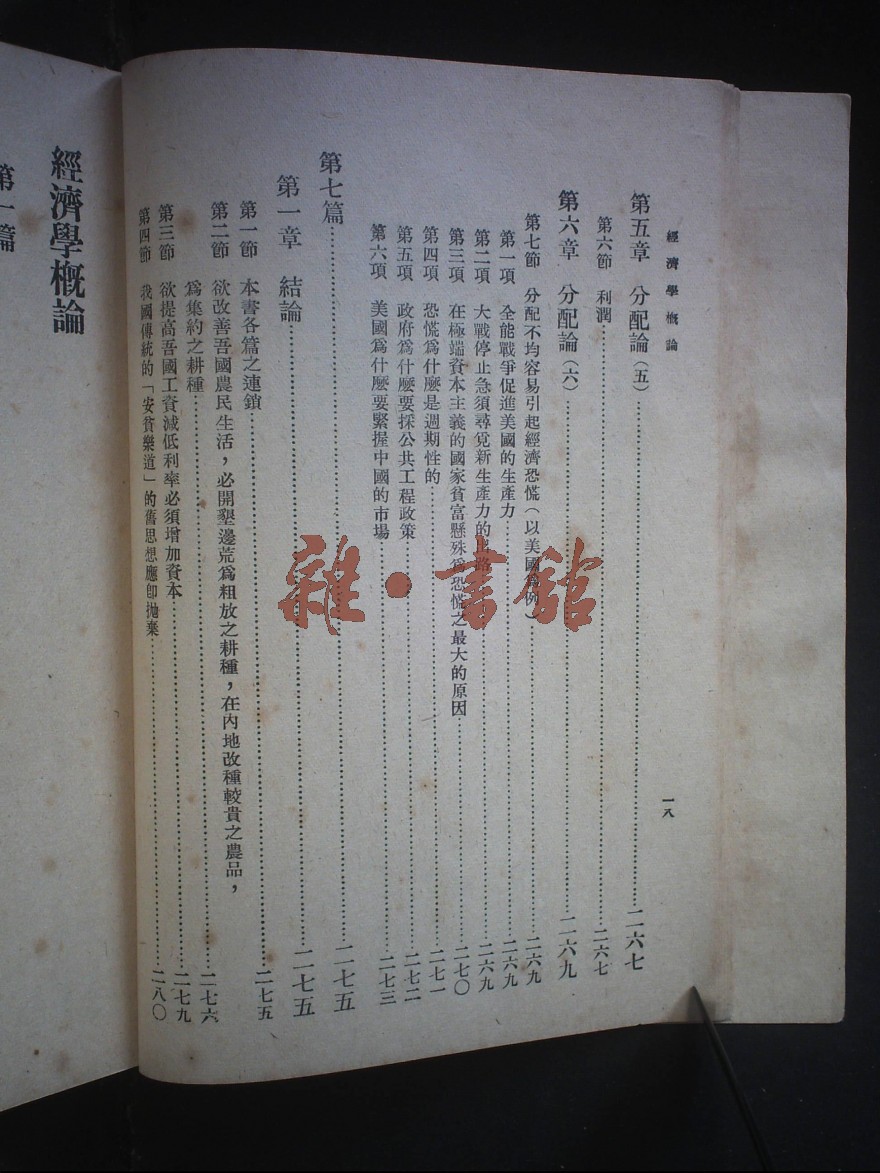 經濟學概論
一八
第五章 分配論(五)……二六七
第六節 利潤……二六七
第六章 分配論(六)……二六九
第七節 分配不均容易引起經濟恐慌(以美國爲例)……二六九
第一項 全能戰爭促進美國的生產力……二六九
第二項 大戰停止急須尋覓新生產力的出路……二六九
第三項 在極端資本主義的國家貧富懸殊爲恐慌之最大的原因……二七〇
第四項 恐慌爲什麼是週期性的……二七一
第五項 政府爲什麼要採公共工程政策……二七二
第六項 美國爲什麼要緊握中國的市場……二七三
第七篇……二七五
第一章 結論……二七五
第一節 本書各篇之連鎖……二七五
第二節 欲改善吾國農民生活,必開墾邊荒爲粗放之耕種,在內地改種較貴之農品,
爲集約之耕種……二七六
第三節 欲提高吾國工資減低利率必須增加資本……二七九
第四節 我國傳統的「安貧樂道」的舊思想應卽拋棄……二八〇
經濟學概論
第一篇
雜·書館